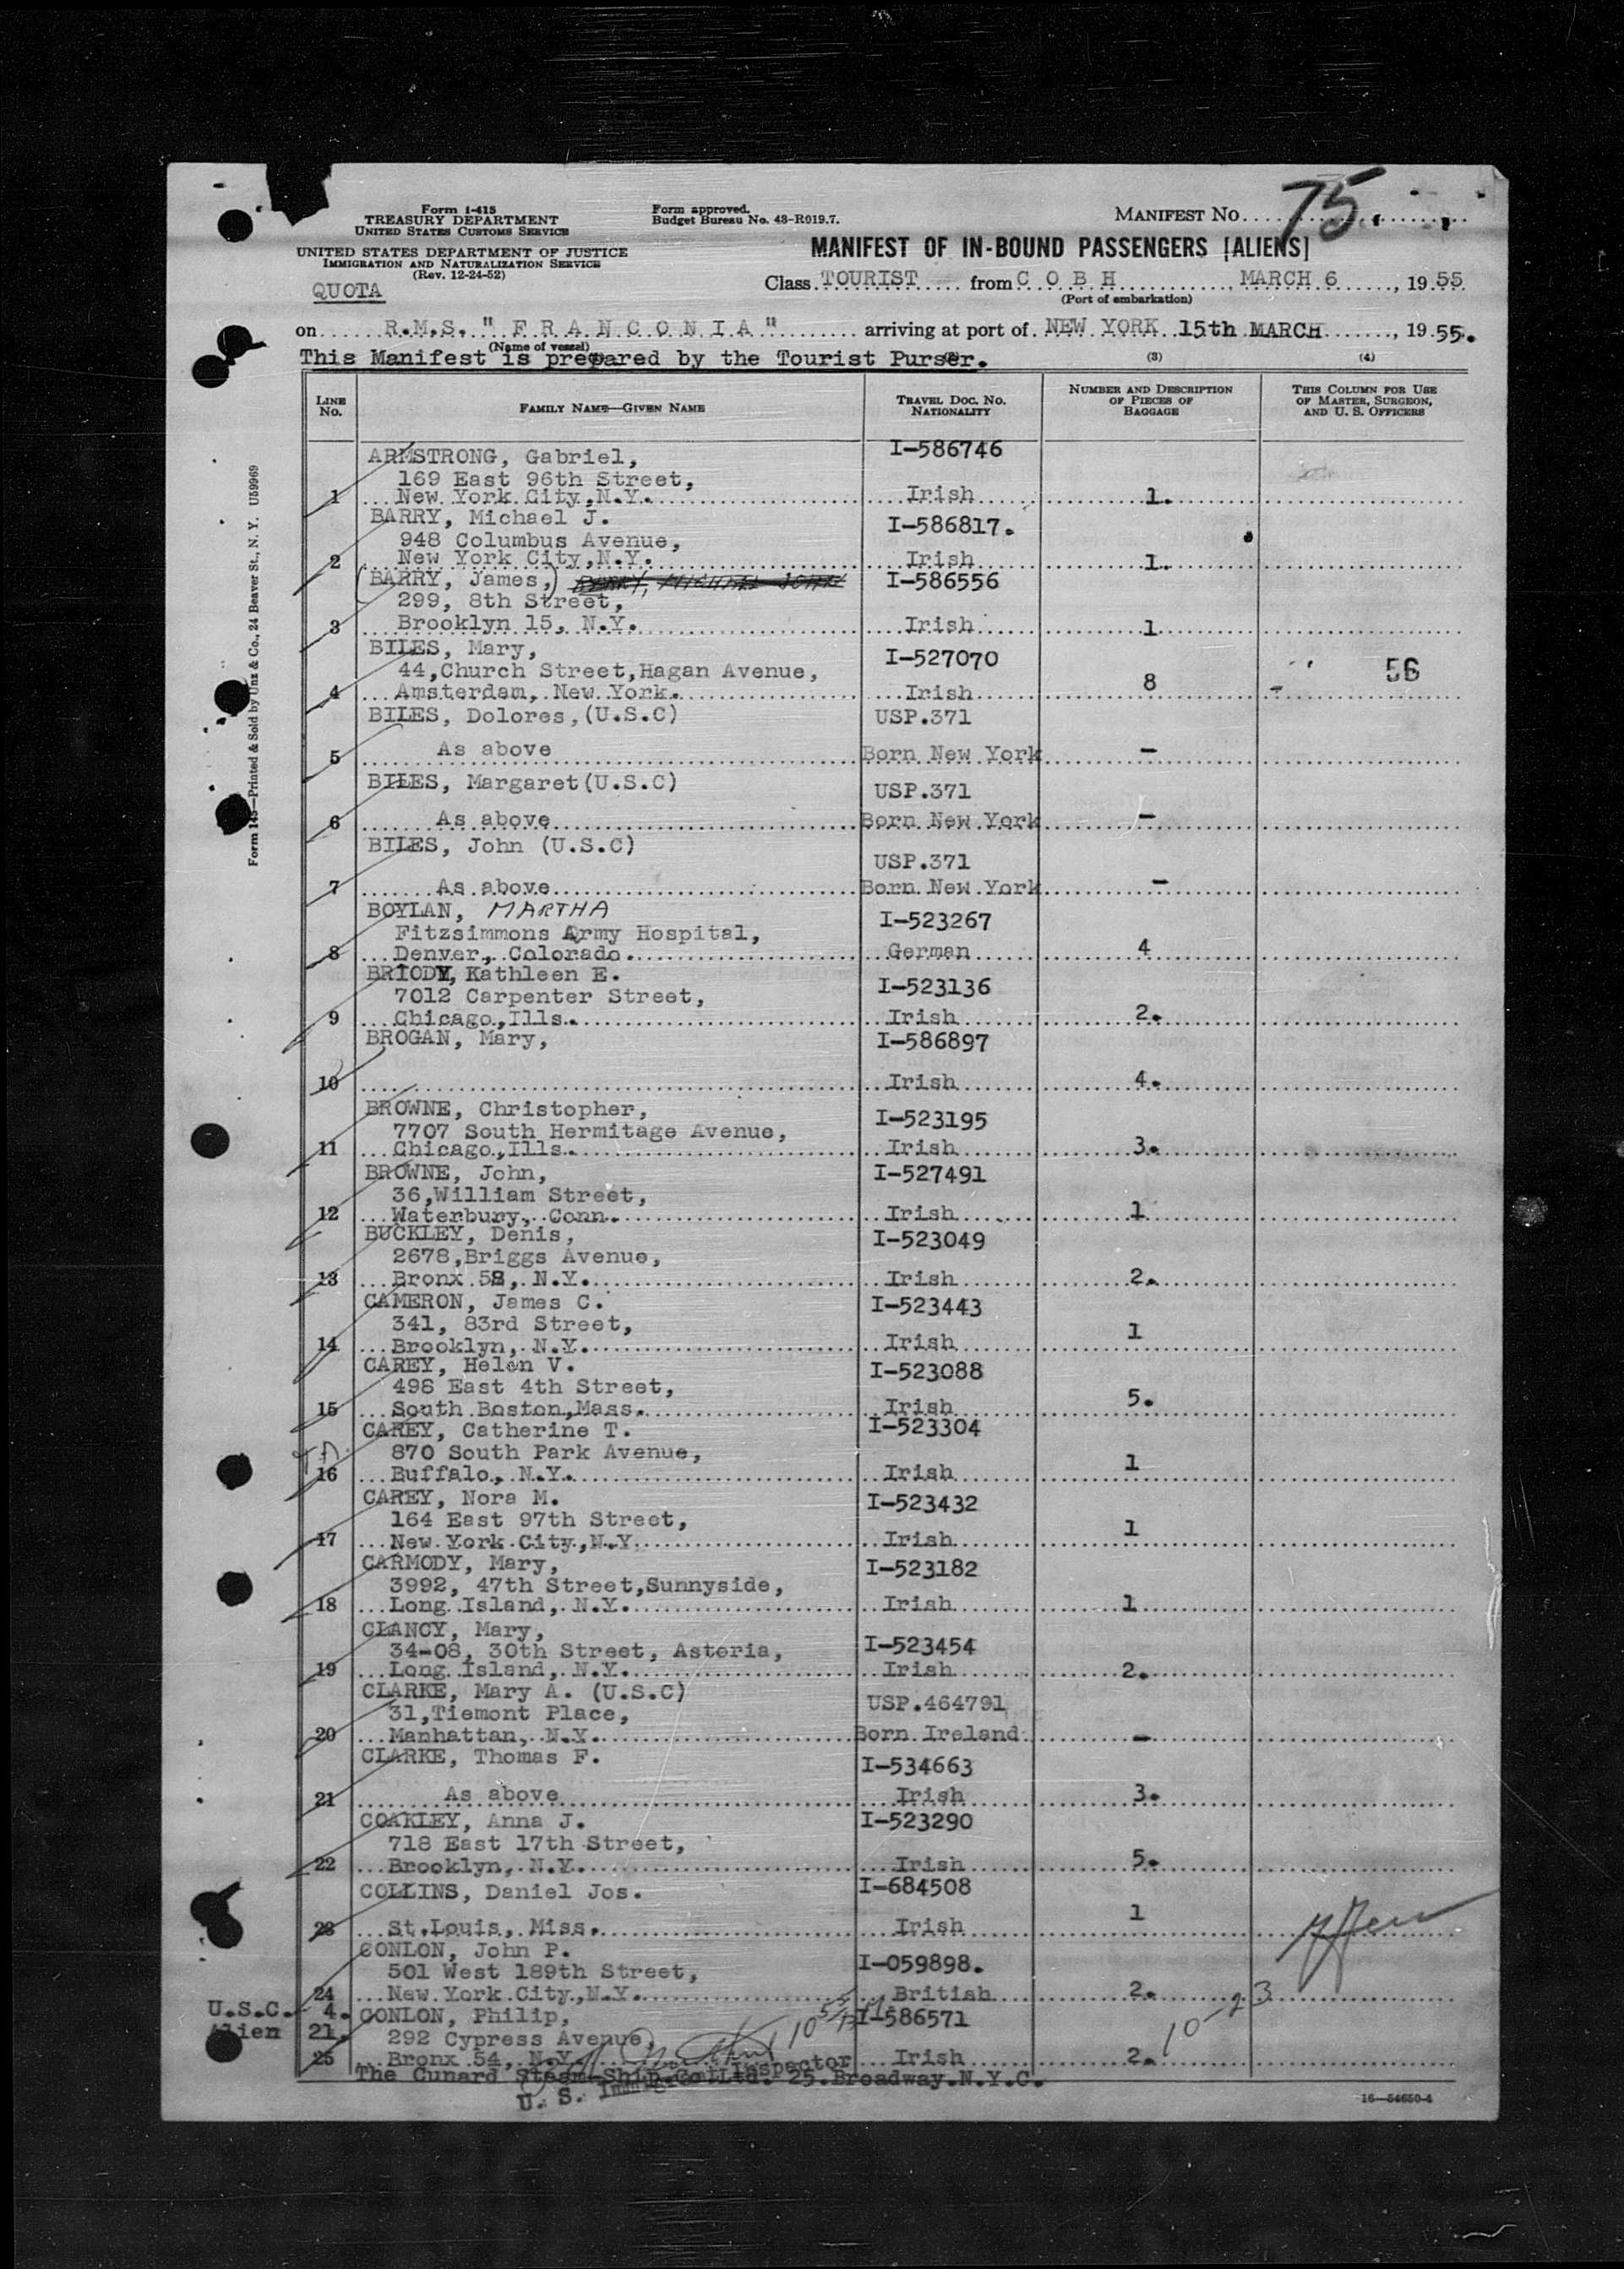 Form I-415
TREASURY DEPARTMENT
UNITED STATES CUSTOMS SERVICE
UNITED STATES DEPARTMENT OF JUSTICE
IMMIGRATION AND NATURALIZATION SERVICE
(Rev. 12-24-52)
QUOTA
Form approved.
Budget Bureau No. 43-R019.7.
MANIFEST NO. 75
MANIFEST OF IN-BOUND PASSENGERS [ALIENS]
Class TOURIST from C O B H, MARCH 6, 19 55
(Port of embarkation)
on R.M.S. "F R A N C O N I A" arriving at port of NEW YORK 15th MARCH, 19 55.
(Name of vessel)
This Manifest is prepared by the Tourist Purser. (3) (4)
LINE NO. FAMILY NAME—GIVEN NAME TRAVEL DOC. NO. NATIONALITY NUMBER AND DESCRIPTION OF PIECES OF BAGGAGE THIS COLUMN FOR USE OF MASTER, SURGEON, AND U. S. OFFICERS
ARMSTRONG, Gabriel, I-586746
169 East 96th Street,
1 New York City, N.Y. Irish 1.
BARRY, Michael J. I-586817.
948 Columbus Avenue,
2 New York City, N.Y. Irish 1.
(BARRY, James,) BARRY, MICHAEL JOHN I-586556
299, 8th Street,
3 Brooklyn 15, N.Y. Irish 1
BILES, Mary, I-527070
44, Church Street, Hagan Avenue, 56
4 Amsterdam, New York. Irish 8
BILES, Dolores, (U.S.C) USP.371
5 As above Born New York -
BILES, Margaret (U.S.C) USP.371
6 As above Born New York -
BILES, John (U.S.C) USP.371
7 As above Born New York -
BOYLAN, MARTHA I-523267
Fitzsimmons Army Hospital,
8 Denver, Colorado. German 4
BRIODY, Kathleen E. I-523136
7012 Carpenter Street,
9 Chicago, Ills. Irish 2.
BROGAN, Mary, I-586897
10 Irish 4.
BROWNE, Christopher, I-523195
7707 South Hermitage Avenue,
11 Chicago, Ills. Irish 3.
BROWNE, John, I-527491
36, William Street,
12 Waterbury, Conn. Irish 1
BUCKLEY, Denis, I-523049
2678, Briggs Avenue,
13 Bronx 58, N.Y. Irish 2.
CAMERON, James C. I-523443
341, 83rd Street,
14 Brooklyn, N.Y. Irish 1
CAREY, Helen V. I-523088
498 East 4th Street,
15 South Boston, Mass. Irish 5.
CAREY, Catherine T. I-523304
870 South Park Avenue,
16 Buffalo, N.Y. Irish 1
CAREY, Nora M. I-523432
164 East 97th Street,
17 New York City, N.Y. Irish 1
CARMODY, Mary, I-523182
3992, 47th Street, Sunnyside,
18 Long Island, N.Y. Irish 1
CLANCY, Mary, I-523454
34-08, 30th Street, Astoria,
19 Long Island, N.Y. Irish 2.
CLARKE, Mary A. (U.S.C) USP.464791
31, Tiemont Place,
20 Manhattan, N.Y. Born Ireland -
CLARKE, Thomas F. I-534663
21 As above Irish 3.
COAKLEY, Anna J. I-523290
718 East 17th Street,
22 Brooklyn, N.Y. Irish 5.
COLLINS, Daniel Jos. I-684508
23 St.Louis, Miss. Irish 1
CONLON, John P. I-059898.
501 West 189th Street,
24 New York City, N.Y. British 2.
U.S.C. 4. CONLON, Philip, I-586571
Alien 21. 292 Cypress Avenue, 10-23
25 Bronx 54, N.Y. Irish 2.
The Cunard Steam-Ship Co Ltd. 25.Broadway.N.Y.C.
U. S. Immigrant Inspector
16—54650-4
Form 145—Printed & Sold by Unz & Co., 24 Beaver St., N. Y. U59969